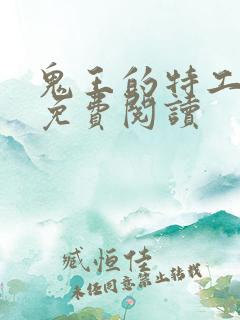 鬼王的特工
免費閱讀
臧恒佳
未经同意禁止转载